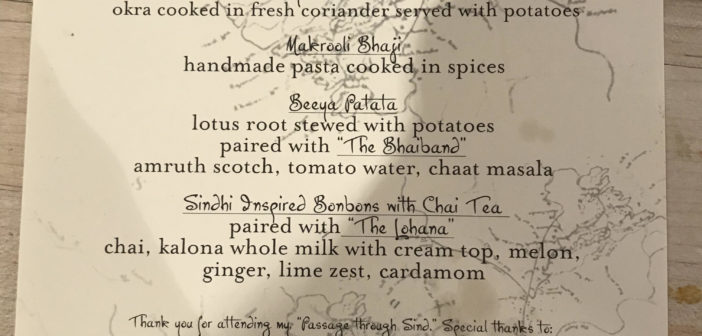 okra cooked in fresh coriander served with potatoes
Makrooli Bhaji
handmade pasta cooked in spices
Beeya Patata
lotus root stewed with potatoes
paired with "The Bhaiband"
amruth scotch, tomato water, chaat masala
Sindhi Inspired Bonbons with Chai Tea
paired with "The Lohana"
chai, kalona whole milk with cream top, melon,
ginger, lime zest, cardamom
Thank you for attending my "Passage through Sind." Special thanks to: